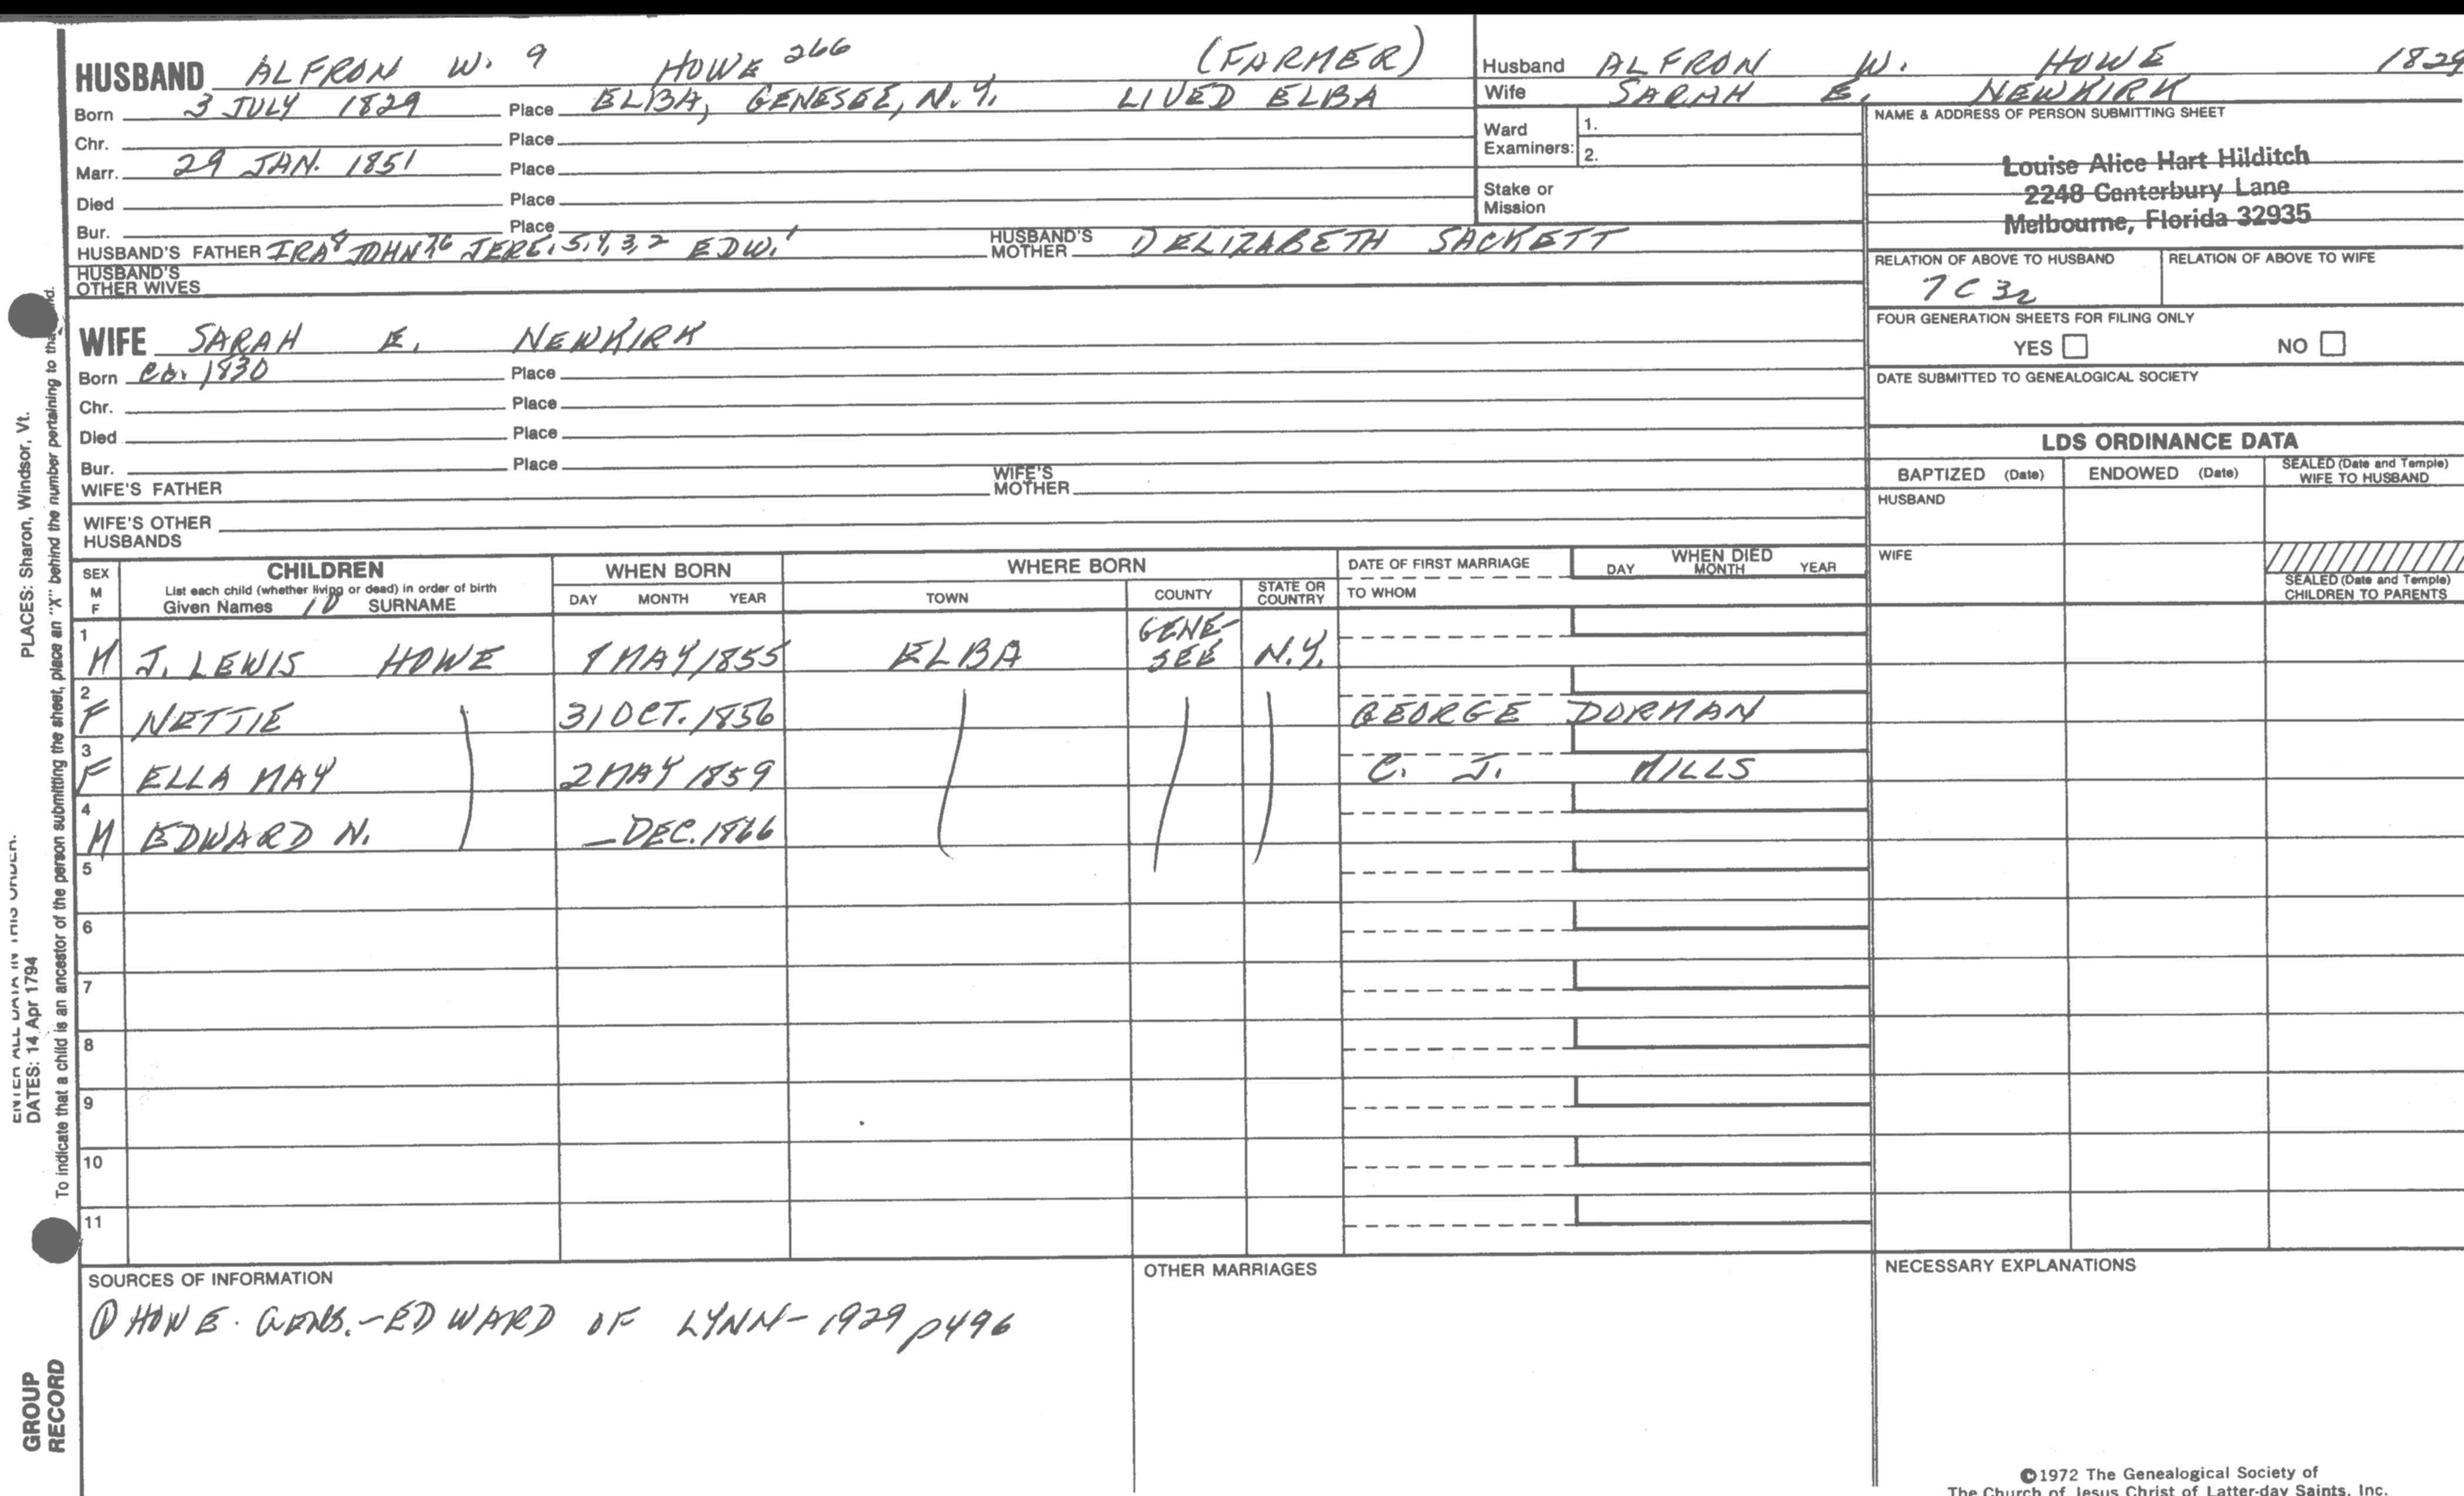 HUSBAND ALFRON W. 9 HOWE 266 (FARMER)
Born 3 JULY 1829 Place ELBA, GENESEE, N.Y. LIVED ELBA
Chr. Place
Marr. 29 JAN. 1851 Place
Died Place
Bur. Place
HUSBAND'S FATHER IRA8 JOHN76 JERE. 5,4,3,2 EDW.1 HUSBAND'S MOTHER DELIZABETH SACKETT
HUSBAND'S OTHER WIVES
Husband ALFRON W. HOWE 1829
Wife SARAH E. NEWKIRK
Ward Examiners: 1.
2.
Stake or Mission
NAME & ADDRESS OF PERSON SUBMITTING SHEET
Louise Alice Hart Hilditch
2248 Canterbury Lane
Melbourne, Florida 32935
RELATION OF ABOVE TO HUSBAND RELATION OF ABOVE TO WIFE
7C 3r
FOUR GENERATION SHEETS FOR FILING ONLY
YES NO
DATE SUBMITTED TO GENEALOGICAL SOCIETY
WIFE SARAH E. NEWKIRK
Born 1830 Place
Chr. Place
Died Place
Bur. Place
WIFE'S FATHER WIFE'S MOTHER
WIFE'S OTHER HUSBANDS
LDS ORDINANCE DATA
BAPTIZED (Date) ENDOWED (Date) SEALED (Date and Temple) WIFE TO HUSBAND
HUSBAND
WIFE
SEALED (Date and Temple) CHILDREN TO PARENTS
SEX M F
CHILDREN
List each child (whether living or dead) in order of birth
Given Names 10 SURNAME
WHEN BORN
DAY MONTH YEAR
WHERE BORN
TOWN COUNTY STATE OR COUNTRY
DATE OF FIRST MARRIAGE
TO WHOM
WHEN DIED
DAY MONTH YEAR
1 M J. LEWIS HOWE MAY 1855 ELBA GENE-SEE N.Y.
2 F NETTIE 31 OCT. 1856 GEORGE DORMAN
3 F ELLA MAY 2 MAY 1859 C. J. MILLS
4 M EDWARD N. _DEC. 1866
5
6
7
8
9
10
11
SOURCES OF INFORMATION
① HOWE. GENS.-EDWARD OF LYNN-1929 p496
OTHER MARRIAGES
NECESSARY EXPLANATIONS
©1972 The Genealogical Society of
The Church of Jesus Christ of Latter-day Saints, Inc.
PLACES: Sharon, Windsor, Vt.
ENTER ALL DATA IN THIS ORDER:
DATES: 14 Apr 1794
To indicate that a child is an ancestor of the person submitting the sheet, place an "X" behind the number pertaining to that
GROUP
RECORD